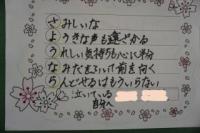 さみしいな
ようきな声も遠ざかる
うれしい気持ちも心に半分
なみだをふいて前を向く
らんどせるはもういらない
泣いている
自分へ